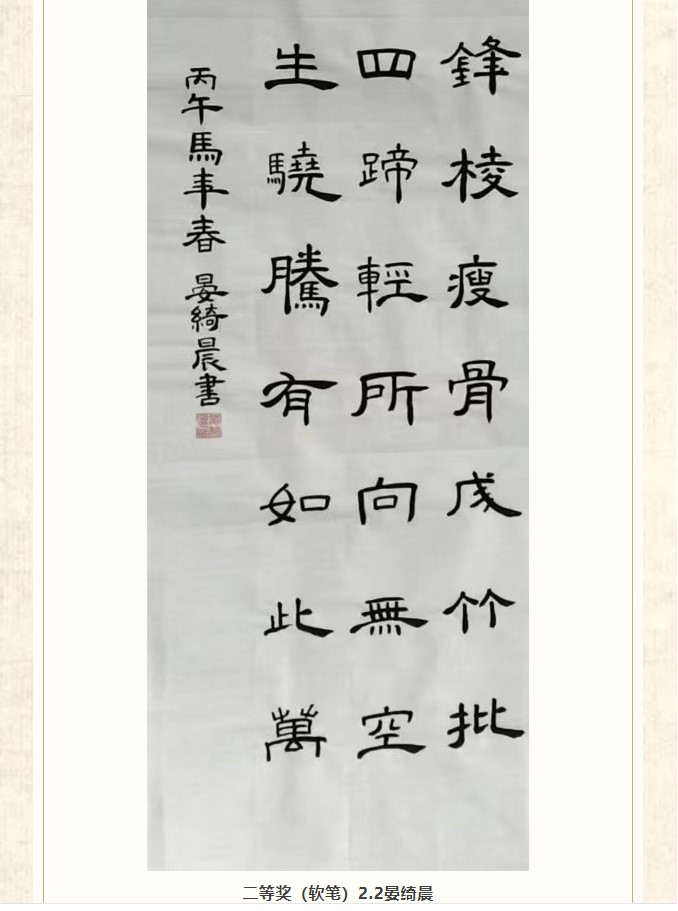 鋒棱瘦骨成竹批
四蹄輕所向無空
生驍騰有如此萬
丙午馬年春 晏綺晨書
二等奖（软笔）2.2晏绮晨